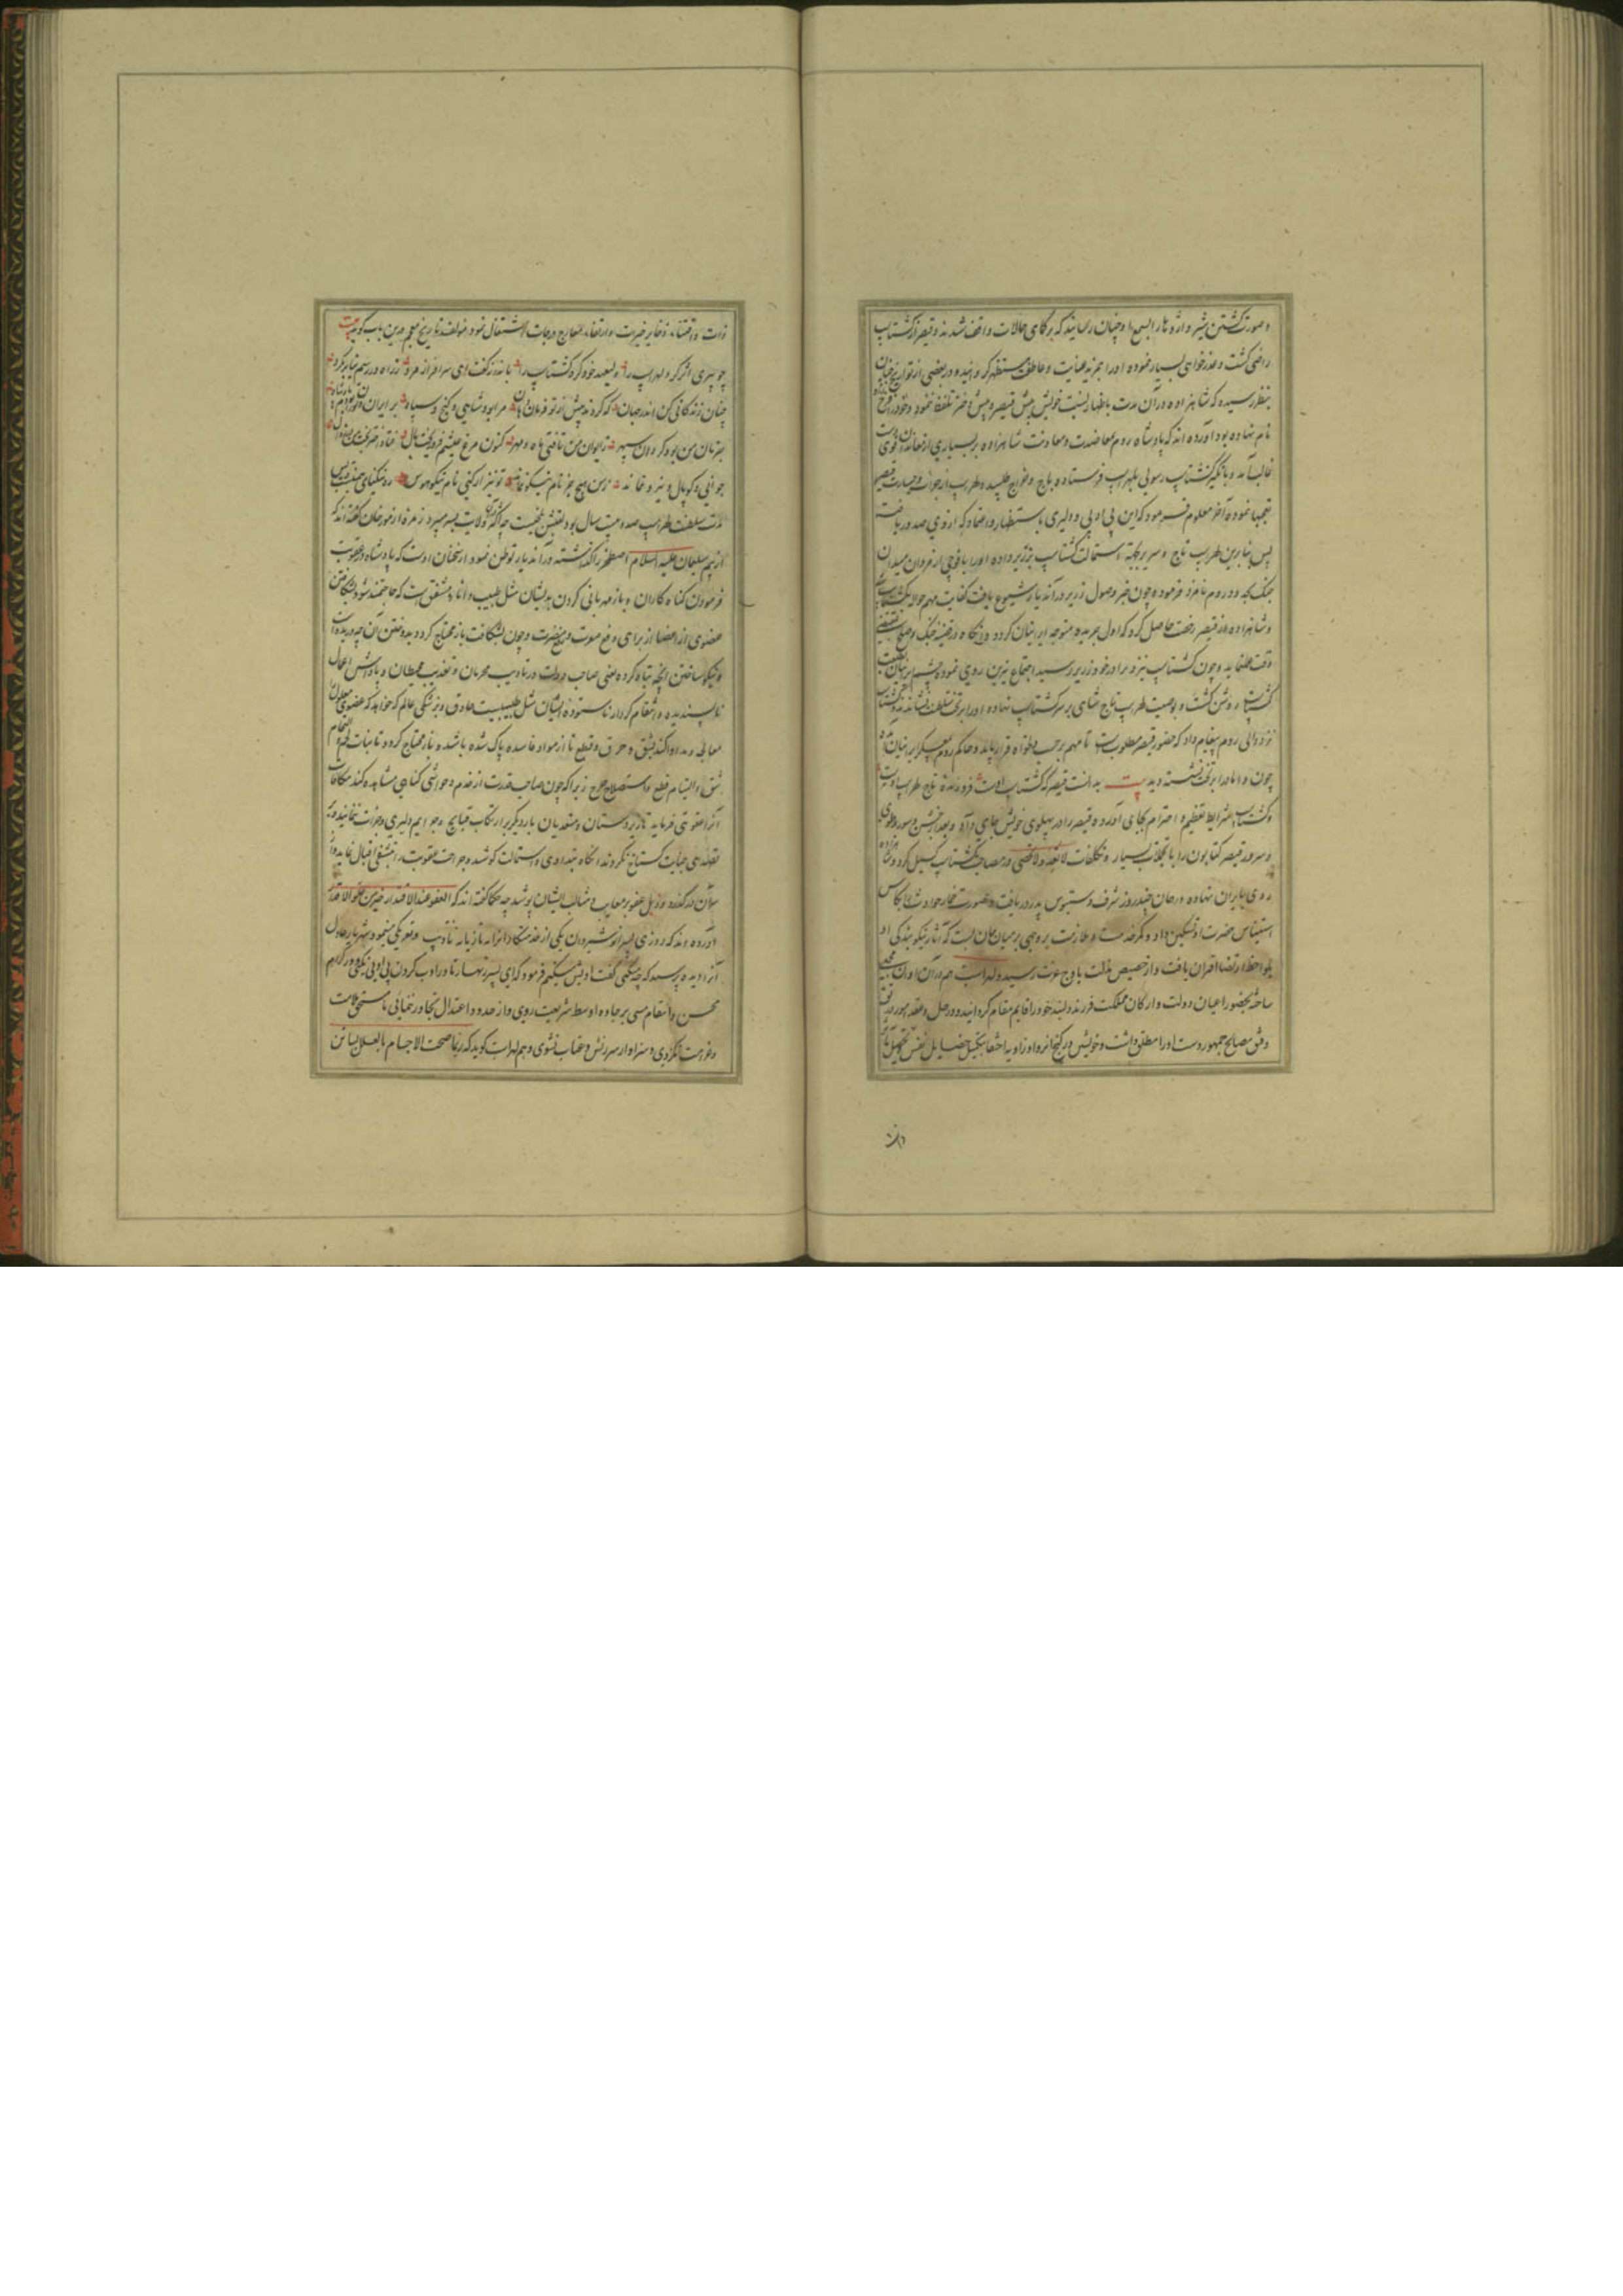 و صورت کشتن شیر و اژدها را بسمع او چنان رسانید که بر کمای حالات واقف شدند و قیصر از کشتاسب
راضی کشت و عذرخواهی بسیار نموده او را بمزید عنایت و عاطفت مستظهر کردانید و در بعضی از تواریخ چنان
بنظر رسیده که شاهزاده در آن مدت باظهار نسبت خویش پیش قیصر و پیش دختر تلفظ ننمود و خود را فرخ زاد
نام نهاده بود آورده اند که پادشاه روم بمعاضدت و معاونت شاهزاده بر بسیاری از معاندان قوی دست
غالب آمد و بانکیز کشتاسب رسولی بلهراسب فرستاده باج و خراج طلبید و لهراسب از جرات و جسارت قیصر
تعجبها نموده آخر معلوم فرمود که این بی ادبی و دلیری باستظهار و اعتماد که از وی صدور یافته
پس بنابرین لهراسب تاج و سریر بجهة استمالت کشتاسب بزریر داده او را با فوجی از مردان میدان
جنک بحدود روم نامزد فرمود و چون خبر وصول زریر در آن دیار شیوع یافت کفایت مهم حواله بکشتاسب
و شاهزاده از قیصر رخصت حاصل کرد که اول جریده متوجه ایرانیان کردد و آنکاه در قضیه جنک و صلح
وقت نماید و چون کشتاسب نزد برادر خود زریر رسید اجتماع نیرین روی نمود و چشم ایرانیان بطلعت
کشتاسب روشن کشت و بوصیت لهراسب تاج شاهی بر سر کشتاسب نهاده او را بر تخت سلطنت نشاندند و کشتاسب
نزد والی روم پیغام داد که حضور قیصر مطلوبست تا مهم بر حسب دلخواه قرار یابد و حاکم روم بمعسکر ایرانیان آمده
چون داماد را بر تخت نشسته دید بیت بدانست قیصر که کشتاسب اوست فروزنده تاج لهراسب اوست
و کشتاسب شرایط تعظیم و احترام بجای آورده قیصر را در پهلوی خویش جای داد و بعد از جشن و سور و طوی
و سرور قیصر کتابون را با تجملات بسیار و تکلفات لاتعد و لاتحصی در مصاحبت کشتاسب کسیل کرد و شاهزاده
روی بایران نهاده در همان چند روز شرف دستبوس پدر دریافت و صورت حوادث
استیناس حضرت او تسکین داد و کمر خدمت و ملازمت بر وجهی بر میان جان بست که آثار نیکو بندکی او
بلواحظ ارتضا اقتران یافت و از حضیض مذلت باوج عزت رسید و لهراسب هم در آن اوان
ساخته بحضور اعیان دولت و ارکان مملکت فرزند دلبند خود را قایم مقام کردانید و در حل و عقد امور
وفق مصالح جمهور دست او را مطلق داشت و خویش در کنج انزوا و زاویه اختفا بتکمیل فضایل نفس و تحصیل
ذات و اقتناء ذخایر خیرات و ارتقاء معارج درجات اشتغال نمود مولف تاریخ معجم درین باب کوید بیت
چو پیری اثر کرد لهراسب را ولیعهد خود کرد کشتاسب را باندرز کفت ای سرافراز مرد ز راه و رسم نیا بر مکرد
چنان زندکانی کن اندر جهان که کردند پیش از تو فرماندهان مرا بود شاهی و کنج و سپاه بر ایران و توران بدم پادشاه
بفرمان من بود کردان سپهر ز ایوان من تافتی ماه و مهر کنون مرغ عیشم فرو ریخت بال
جوانی و کوپال و نیرو نماند ز من هیچ جز نام نیکو نماند تو نیز ار کنی نام نیکو هوس
مدت سلطنت لهراسب صد و بیست سال بود لقبش بلخیست چه اکثر در آن ولایت بسر میبرد زمره از مورخان کفته اند که
از بیم سلیمان علیه السلام اصطخر را کذاشته در آن دیار توطن نمود از سخنان اوست که پادشاه در عقوبت
فرمودن کناه کاران و باز مهربانی کردن بدیشان مثل طبیب دانا و مشفق است که محتاج شود بشکافتن
عضوی از اعضا از برای دفع مضرت و چون بشکافت باز محتاج کردد بدوختن آن چه دریده است
و نیکو ساختن آنچه تباه کرده یعنی صاحب دولت در تادیب مجرمان و تعذیب مخبطان و پاداش اعمال
ناپسندیده و انتقام کردار ناستوده ایشان مثل طبیبیست حاذق و پزشکی عالم که خواهد که عضوی معلول
معالجه و مداوا کند بشق و خرق و قطع تا از مواد فاسده پاک شده باشد و باز محتاج کردد
شق و التیام قطع و استصلاح جرح زیرا که چون صاحب قدرت از خدم و حواشی کناهی مشاهده کند مکافات
آنرا عقوبتی فرماید تا زیردستان و متعدیان بار دیکر بر ارتکاب قبایح و جرایم دلیری و جرات ننمایند و
تصدی جنایت کستاخ نکردند آنکاه بتدارک و استمالت کوشد و جراحت عقوبت را بتشفی اقبال نماید و از
سر آن درکذرد و ذیل عفو بر معایب و مثالب ایشان پوشد چه حکما کفته اند که العفو عند الاقتدار
آورده اند که روزی پسر انوشیروان یکی از خدمتکاران را بتازیانه تادیب و تعریک مینمود شهریار عادل
آنرا دیده پرسید که چه میکنی کفت ادبش میکنم فرمود که ای پسر زنهار تا در ادب کردن بی ادبی نکنی و در اکرام
محسن و انتقام مسی بر جاده اوسط شریعت روی و از حدود اعتدال تجاوز ننمائی تا مستحق ملامت
و غرامت نکردی و سزاوار سرزنش و عتاب نشوی و هم لهراسب کوید که ربما صحت الاجسام بالعلل
ذات